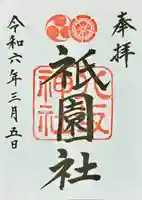 奉拝
八坂
神社
祇園社
令和六年三月五日